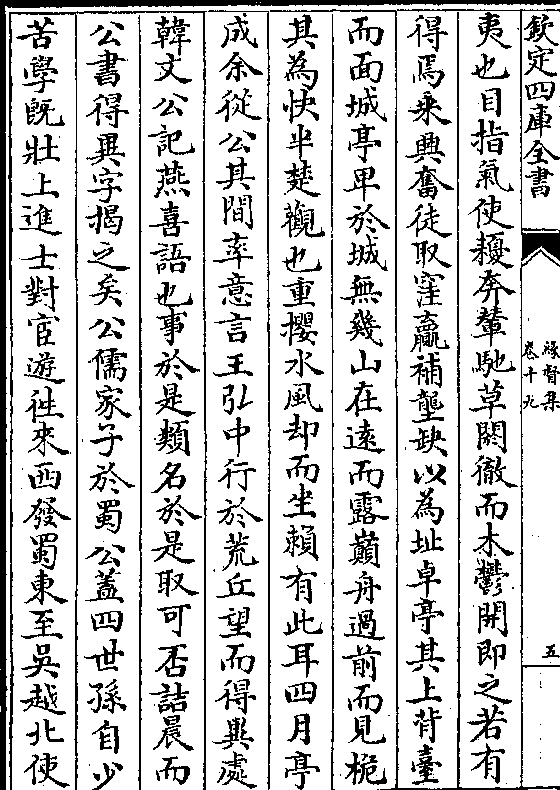 欽定四庫全書
緣督集
卷十九
五
夷也目指氣使耰奔輦馳草闕徹而木鬱開即之若有
得焉乘興奮徒取窪羸補壟缺以為址卓亭其上背臺
而面城亭卑於城無幾山在遠而露巔舟過前而見桅
其為快半楚觀也重攖水風却而坐頼有此耳四月亭
成余從公其間率意言王弘中行於荒丘望而得異處
韓文公記燕喜語也事於是類名於是取可否詰晨而
公書得異字揭之矣公儒家子於蜀公蓋四世孫自少
苦學既壯上進士對宦遊徃來西發蜀東至吳越北使